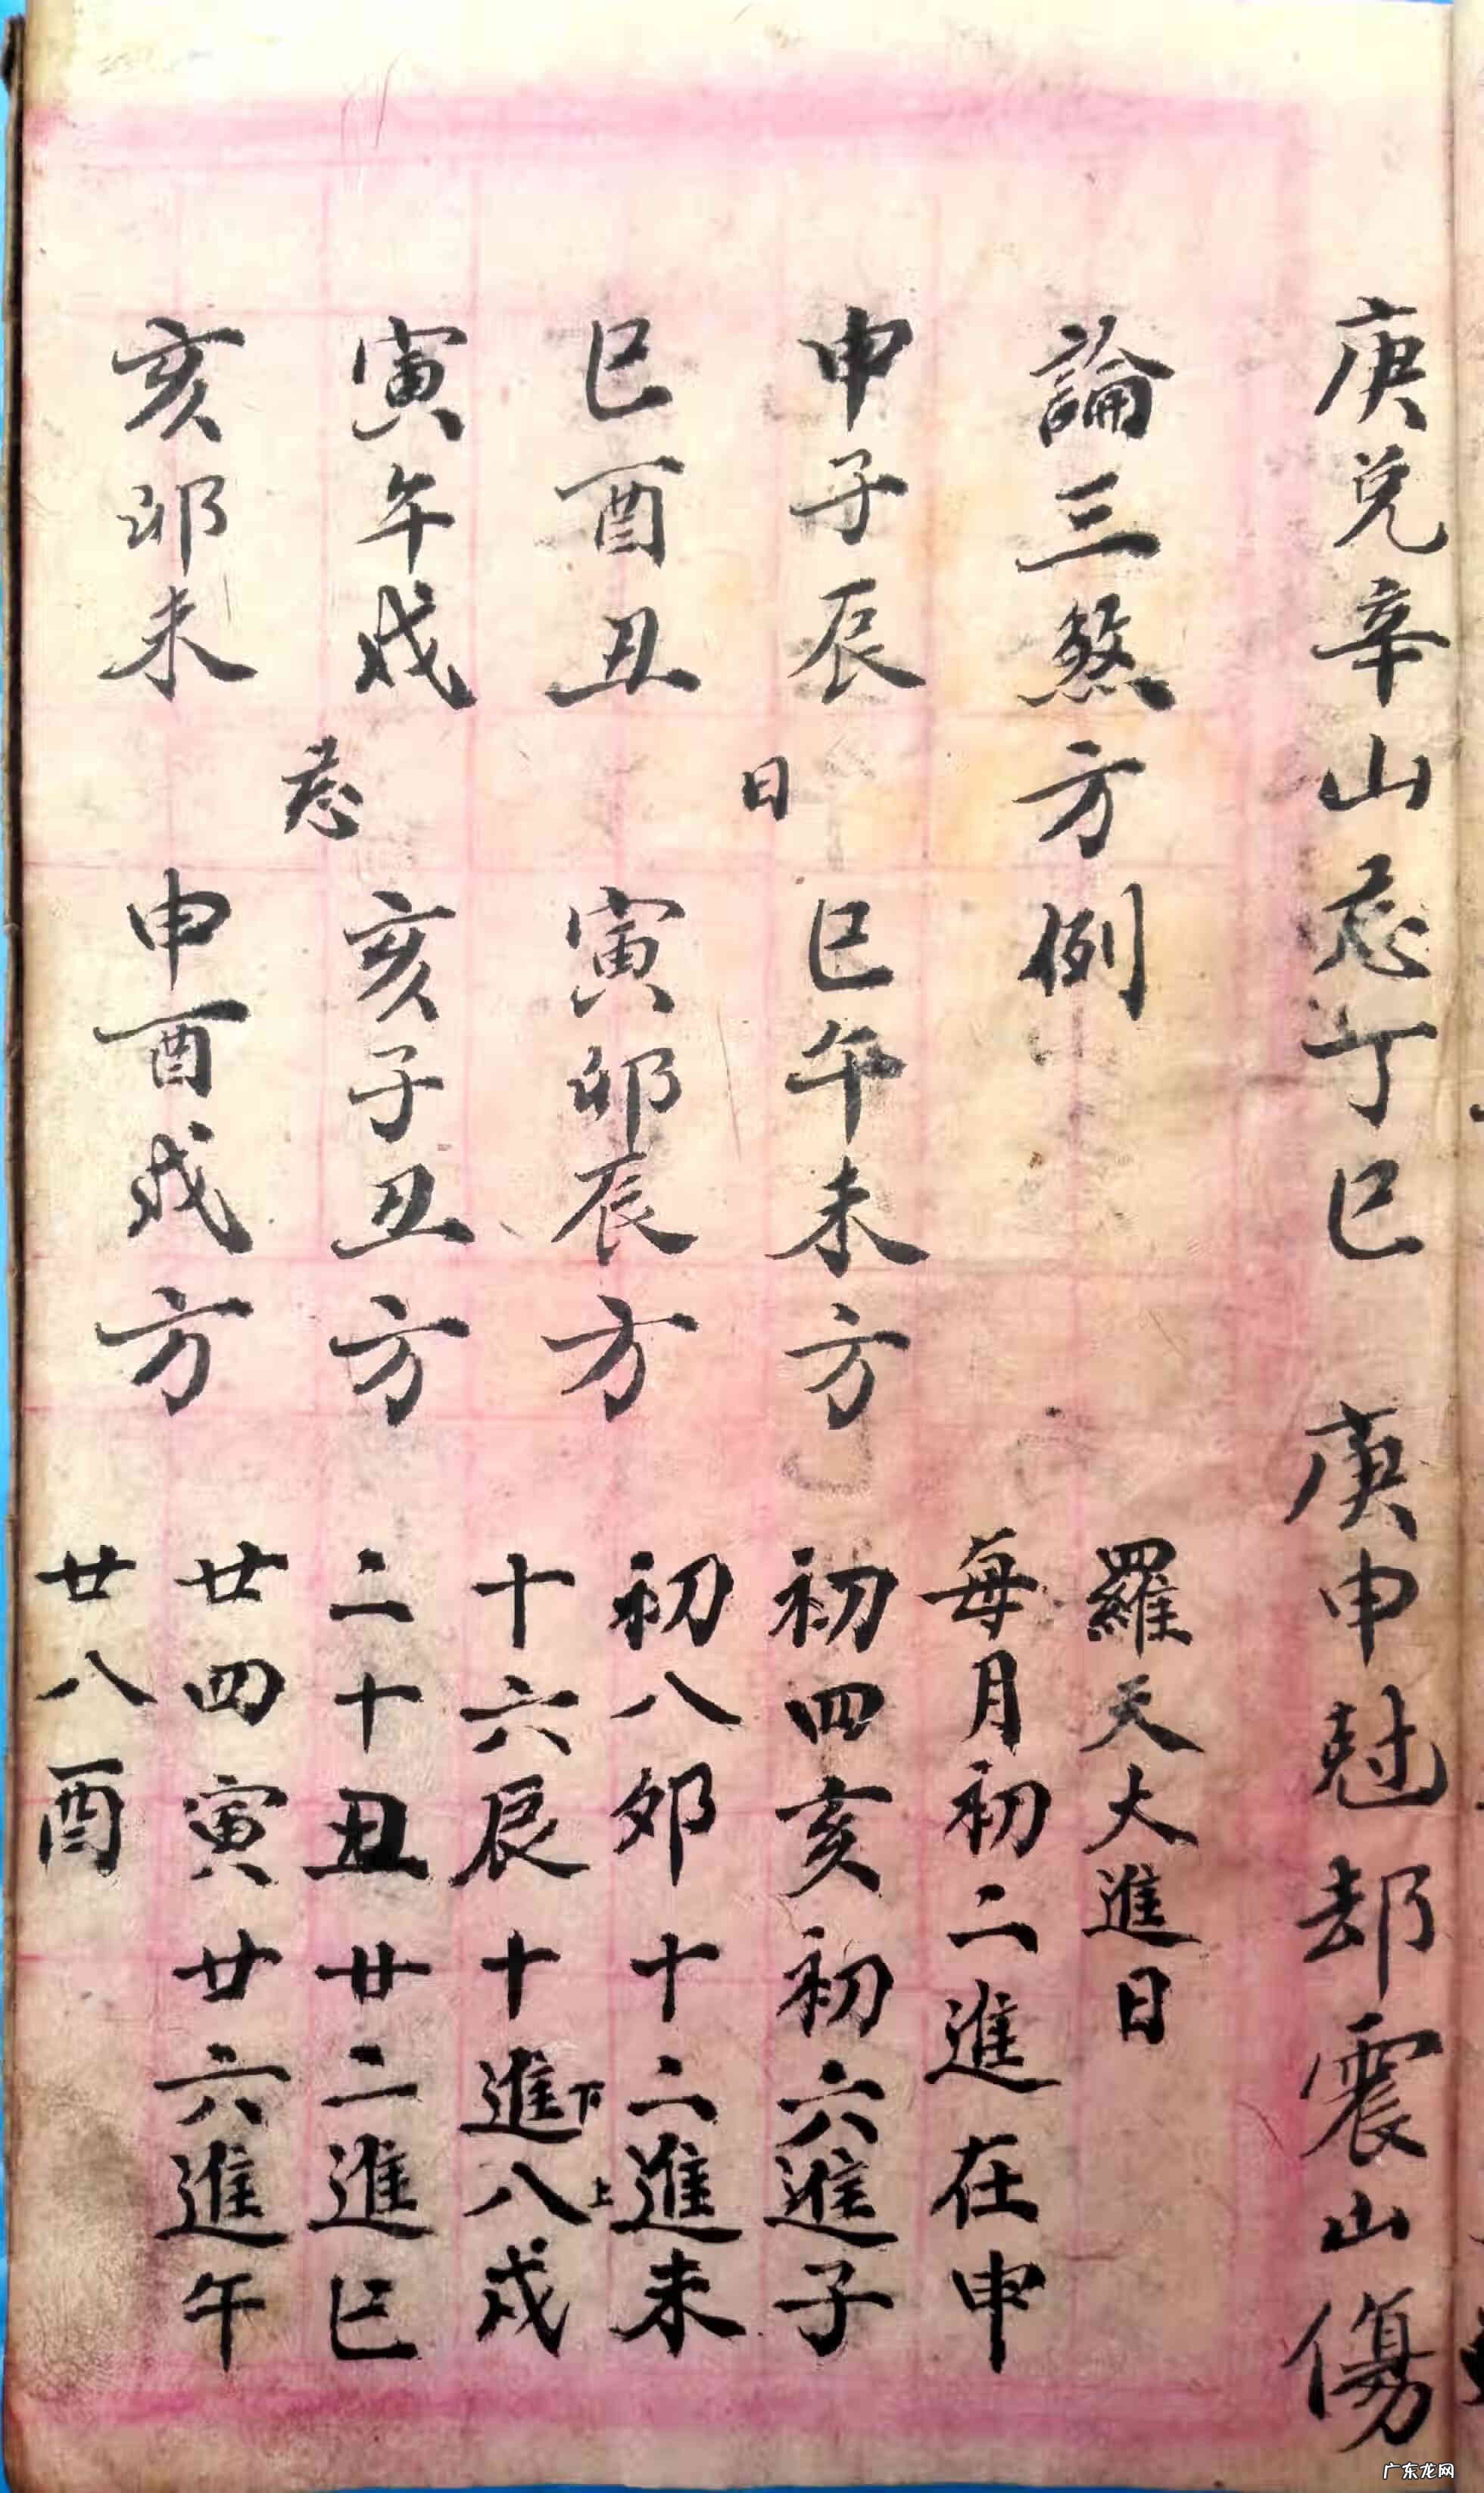 庚兌辛山忌丁巳 庚申尅却震山傷
論三煞方例
申子辰 巳午未方
日
巳酉丑 寅卯辰方
寅午戌 亥子丑方
忌
亥卯未 申酉戌方
羅天大進日
每月初二進在申
初四亥初六進子
初八卯十二進未
上下
十六辰十進八戌
二十丑廿二進巳
廿四寅廿六進午
廿八酉
广东龙网